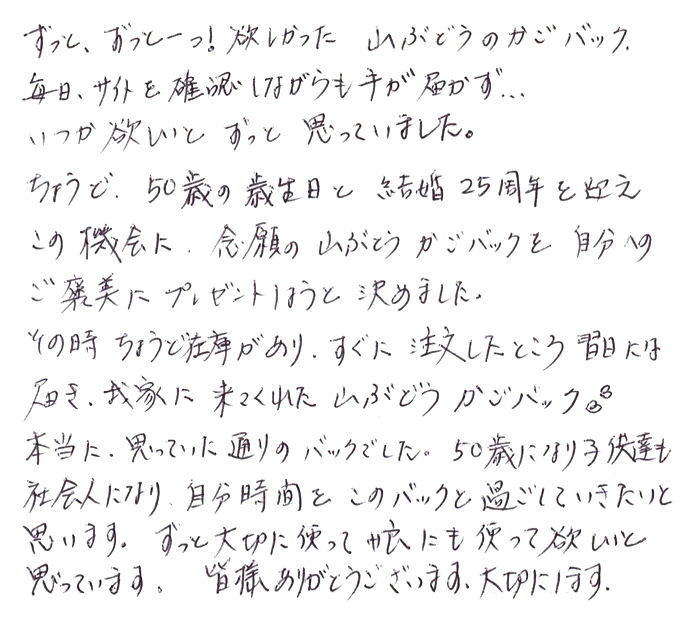 ずっと、ずっとーっ！欲しかった 山ぶどうのかごバック.
毎日、サイトを確認しながらも手が届かず…
いつか欲しいと ずっと 思っていました。
ちょうど、50歳の歳生日と 結婚25周年を迎え
この機会に、念願の山ぶどうかごバックを 自分への
ご褒美に プレゼントしようと 決めました。
その時 ちょうど在庫があり、すぐに 注文したところ 翌日には
届き、我家に 来てくれた 山ぶどう かごバック。
本当に、思っていた通りのバックでした。50歳になり子供達も
社会人になり、自分時間を このバックと過ごしていきたいと
思います。ずっと大切に使って娘にも使って欲しいと
思っています。皆様ありがとうございます、大切にします.